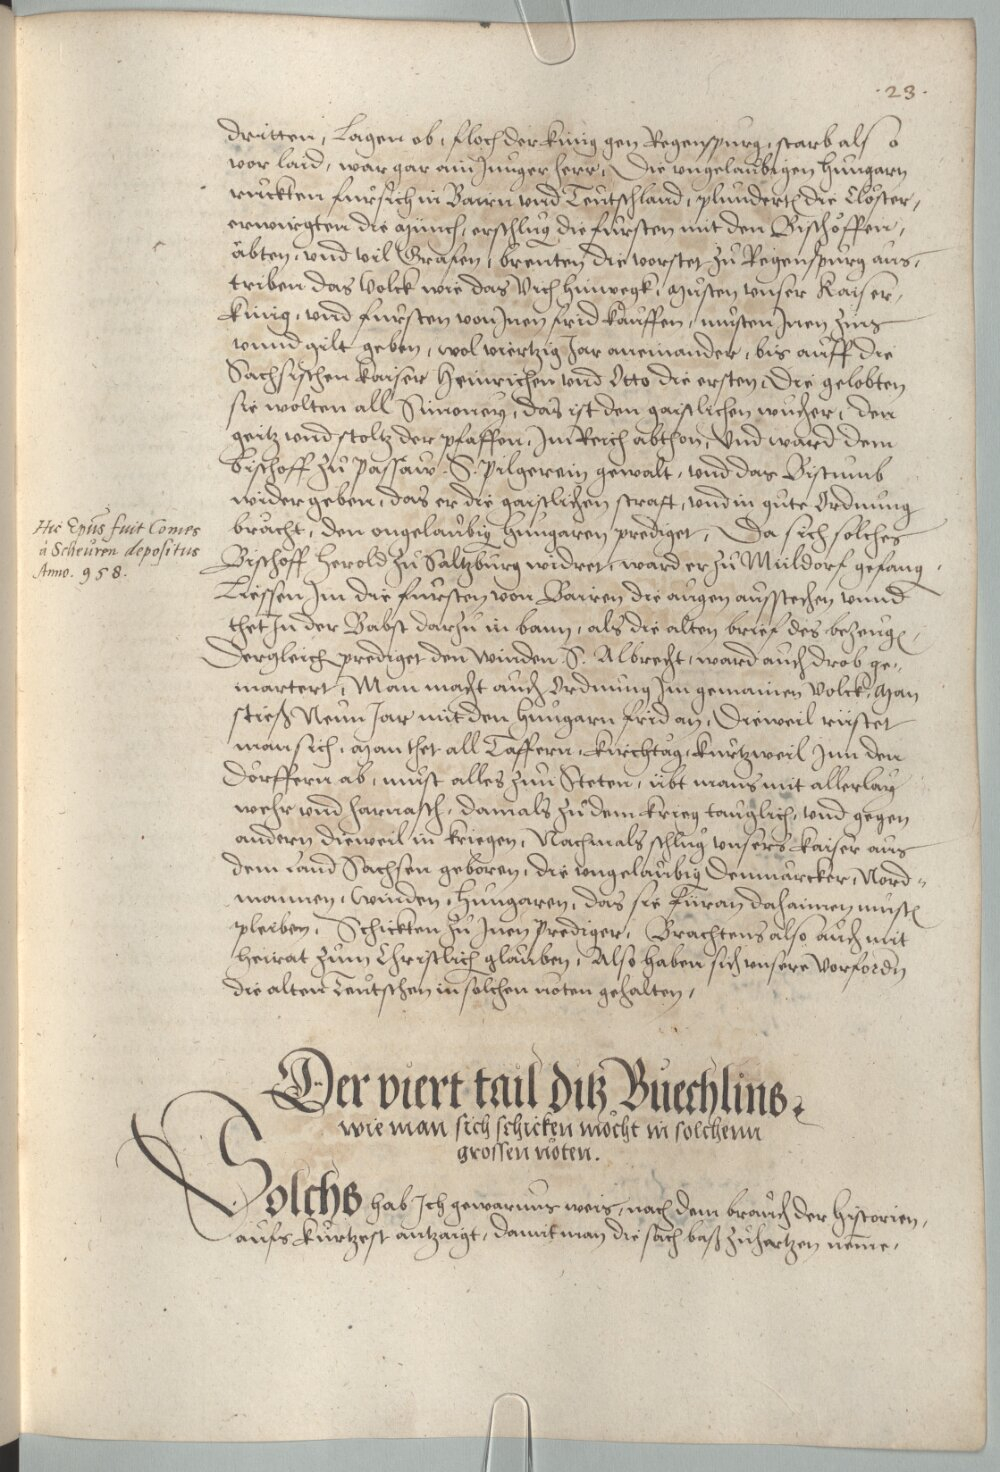 ·23·
dritten, Lagen ob, floch der künig gen Regenspurg, starb also
vor laid, war gar ain Junger herr, Die ungelaubigen Hungarn
ruckten fur sich in Bairn und Teutschland, plundertē die Clöster,
erwürgten die Münch, erschlug die fursten mit den Bischöffen,
äbten, und vil Grafen, brenten die vorstet zu Regenspurg aus,
triben das Volck wie das Vich hinwegk, Musten unser Kaiser,
künig, und fursten von Jnen frid kauffen, musten Jnen zins
unnd gilt geben, wol viertzig Jar aneinander, bis auff die
Sächsischen kaiser Heinrichen und Otto die ersten, Die gelobten
sie wolten all Simoney, das ist den gaistlichen wucher, den
geitz und stoltz der pfaffen, Jm Reich abthon, Und ward dem
Bischoff zu Passaw S. Pilgerein gewalt, und das Bistumb
wider geben, das er die gaistlichen straft, und in gute Ordnung
bracht, den ongelaubig Hungaren prediget, Da sich solches
Hic Epūs fuit Comes
à Scheüren depositus
Anno. 958.
Bischoff Herold zu Saltzburg widret, ward er zu Müldorf gefang,
Liessen Jm die fursten von Bairen die augen ausstechen unnd
thet Jn der Babst darzu in bann, als die alten brief des bezeugē,
Dergleich prediget den Winden S. Albrecht, ward auch drob ge-
martert, Man macht auch Ordnung Jm gemainen Volck, Man
stieß Neun Jar mit den Hungarn frid an, Dieweil rüstet
man sich, Man thet all Taffern, kirchtag, kurtzweil Jnn den
Dörffern ab, must alles zun Steten, übt mans mit allerlay
wehr und harnasch, damals zu dem krieg tauglich, und gegen
andern dieweil in kriegen, Nachmals schlug unsers kaiser aus
dem Land Sachsen geboren, die ungelaubig Denmarcker, Nord-
mannen, Winden, Hungaren, das sie füran dahaimen mustē
pleiben, Schickten zu Jnen Prediger, Brachtens also auch mit
Heirat zum Christlich glauben, Also haben sich unsere Vorfordn
die alten Teutschen in solchen nöten gehalten,
Der viert tail ditz Buechlins,
wie man sich schicken möcht in solchenn
grossen nöten.
Solchs hab Jch gewarnus weis, nach dem brauch der Historien,
aufs kurtzest antzaigt, damit man die sach baß zuhertzen neme,